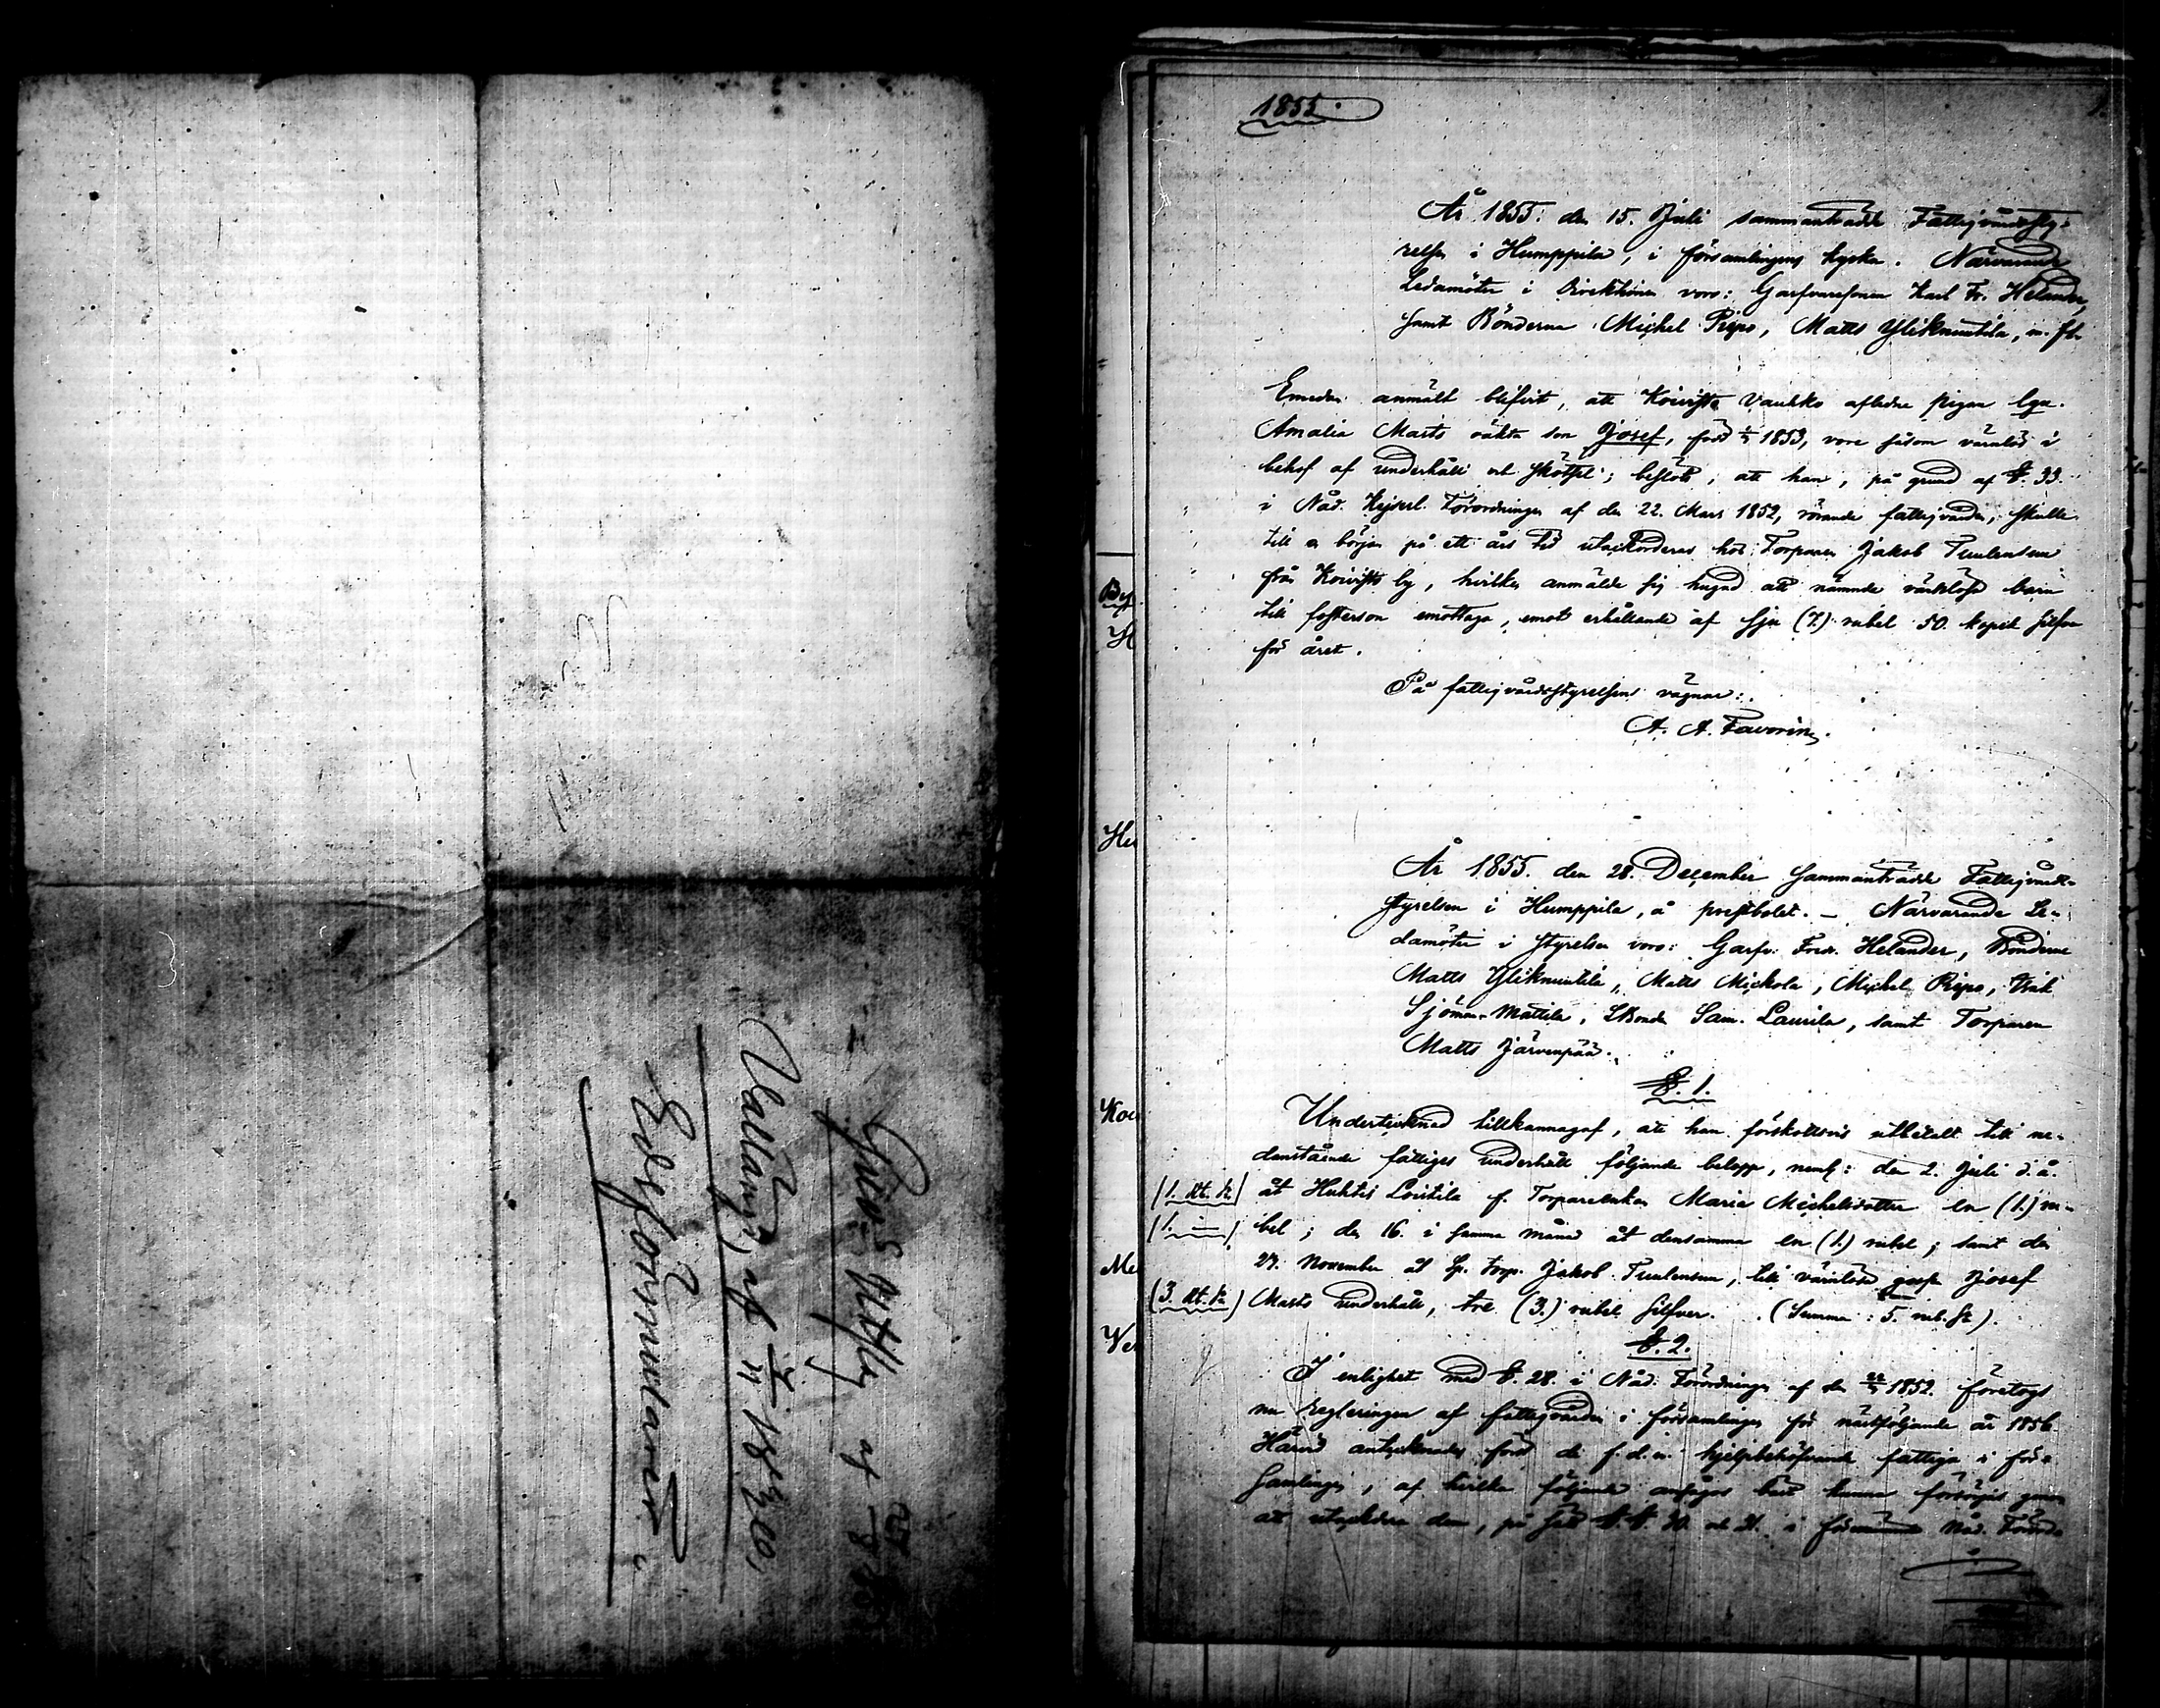 Vallang, af 1830,
Eds formularer.
1855.
År 1855. den 15. Juli sammanträdde Fattigvårdssty-
relsen i Humppila, i församlingens kyrka. Närvarande
Ledamöter i Direktionen voro: Garfvaresonen Karl Fr. Helander,
samt Bönderne Michel Ripo, Matts Yliknuutila, m. fl.
Emedan anmält blifvit, att Koivisto Vauhko aflidne pigan
Amalia Marts oäkta son Josef, född 1853, vore såsom värnlös i
behof af underhåll och skötsel; beslöts, att han, på grund af §. 33.
i Nåd. Kejserl. Förordningen af den 22. Mars 1852, rörande fattigvården, skulle
till en början på ett års tid utackorderas hos Torparen Jakob Tuulensuu
från Koivisto by, hvilken anmälde sig hugad att nämnde värnlösa barn
till fosterson emottaga, emot erhållande af sju (7.) rubel 50. kopek silfver
för året.
På fattigvårdsstyrelsens vägnar:
A. A. Favorin.
År 1855. den 28. December sammanträdde Fattigvårds-
styrelsen i Humppila, å prestbolet. – Närvarande Le-
damöter i styrelsen voro: Garfv. Fredr. Helander, Bönderne
Matts Yliknuutila, Matts Mickola, Michel Ripo, Isak
Sjöman-Mattila, Sam. Laurila, samt Torparen
Matts Järvenpää.
§. 1.
Undertecknad tillkännagaf, att han förskottsvis utbetalt till ne-
danstående fattiges underhåll följande belopp, neml: den 2. Juli d. å.
(1. Rb. Sr) åt Huhtis Loutila f. Torpareenkan Maria Michelsdotter en (1.) ru-
(1. —) bel; den 16. i samma månad åt densamma en (1.) rubel; samt den
27. November åt Torp. Jakob Tuulensuu, till värnlöse Josef
(3. Rb. Sr) Marts underhåll, tre (3.) rubel silfver. (Summa: 5. rub. Sr).
§. 2.
I enlighet med §. 28. i Nåd. Förordningen af den 22/3 1852. företogs
nu regleringen af fattigvården i församlingen för nästföljande år 1856.
Härvid antecknades först de f. d. n. hjelpbehöfvande fattiga i för-
samlingen, af hvilka följande ansågos bäst kunna försörjas genom
att utackordera dem, på sätt §.§. 30. och 31. i Nåd. Förord-